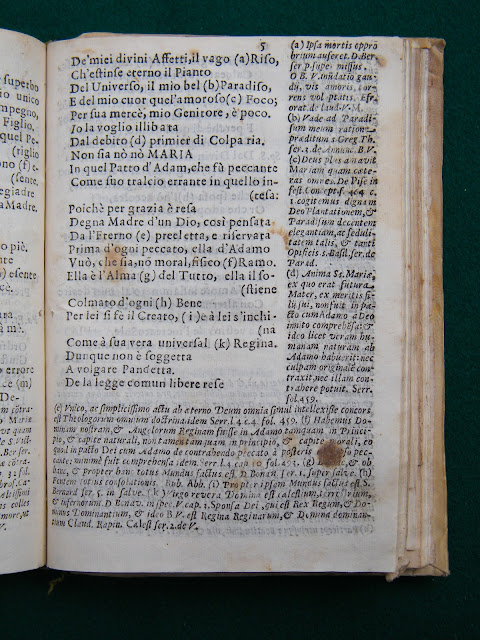 superbo
tio unico
impegno,
Figlio.
quel Pe-
(riglio
(sente.
egiadre
Madre.
o più.
nte
esente
è.
errore
ace (m)
De-
5
De'miei divini Affetti, il vago (a) Riso,
Ch'estinse eterno il Pianto
Del Universo, il mio bel (b) Paradiso,
E del mio cuor quel'amoroso (c) Foco;
Per sua mercè, mio Genitore, è poco.
Io la voglio illibata
Dal debito (d) primier di Colpa ria.
Non sia nò nò MARIA
In quel Patto d'Adam, che fù peccante
Come suo tralcio errante in quello in-
(resa:
Poichè per grazia è resa
Degna Madre d'un Dio, così pensata
Da l'Eterno (e) preeletta, e riservata
Prima d'ogni peccato, ella d'Adamo
Vuò, che sia, nó moral, fisico (f) Ramo.
Ella è l'Alma (g) del Tutto, ella il so-
(stiene
Colmato d'ogni (h) Bene
Per lei si fè il Creato, (i) e à lei s'inchi-
(na
Come à sua vera universal (k) Regina.
Dunque non è soggetta
A volgare Pandetta.
De la legge comun libere rese
(a) Ipsa mortis oppro
brium auferet. D. Ber
ser. p. supe. missus.
O B. V. inudatio gau
dij, vis amoris, tor-
rens volptatis. Efr.
orat. de laud. V. M.
(b) Vade ad Paradi-
sum meum ratione
præditum s. Greg. Th.
ser. 2. de Annuc. B. V.
(c) Deus plus amavit
Mariam quam cæte-
ras omnes. De Pise in
fest. Concept. s. 404 c.
1. cogitemus dignam
Deo Plantationem, &
Paradisum decentem
elegantiam, ac seduli-
tatem talis, & tanti
Opificis s. Basil. ser. de
Parad.
(d) Anima Ss. Mariæ,
ex quo erat futura
Mater, ex meritis fi-
lij sui, nonfuit in pa-
cto cum Adamo a Deo
innito comprehésa: &
ideo licet veram hu-
manam naturam ab
Adamo habuerit: nec
culpam originalē con-
traxit, nec illam con-
trahere potuit. Serr.
fol. 459.
(e) Vnico, ac simplicissimo actu ab æterno Deum omnia simul intellexisse concors
est Theologorum omnium doctrina idem Serr. l. 4 c. 4. fol. 459. (f) Habemus Do-
minam nostram, & Angelorum Reginam fuisse in Adamo tamquam in Princi-
pio, & capite naturali, non tamen tamquam in principio, & capite morali, eo
quod in pacto Dei cum Adamo de contrahendo peccato à posteris
cante, minimè fuit comprehensa idem. Serr. l. 4 cap. 10 fol. 493. (g)
bac, & propter hanc totus Mundus factus est D. Bonav. ser. 1. super salve. (h)
Fontem totius consolationis. Rub. Abb. (i) Propter ipsam Mundus factus est S.
Bernard ser. 5. in salve. (k) Virgo revera Domina est cælestium, terrestrium,
& infernorum. D. Bonav. in spec. V. cap. 3. Sponsa Dei, qui est Rex Regum, & Do-
minus Dominantium, & ideo B. V. est Regina Reginarum, & Domina dominan-
tium Claud. Rapin. Cælest ser. 2. de V.